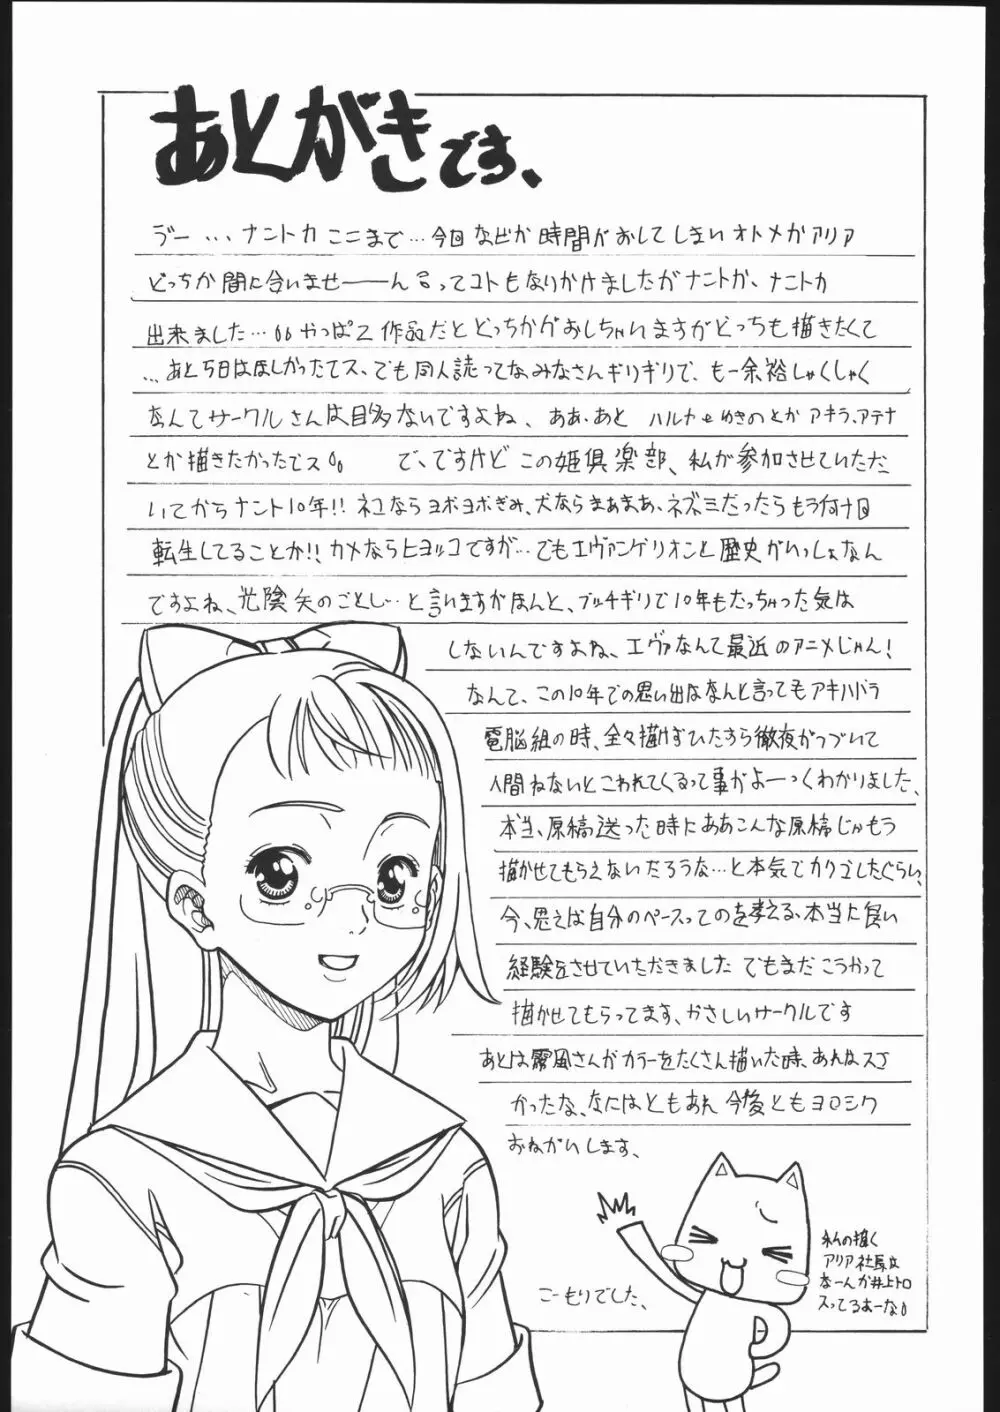 あとがきです、
うー...ナントカここまで...今回なぜか時間がおしてしまいオトメかアリア
どっちか間に合いませーーんるってコトもなりかけましたがナントか、ナントカ
出来ました...。。やっぱ2作品だとどっちかがおしちゃいますがどっちも描きたくて
...あと5日はほしかったてス、でも同人誌ってなみなさんギリギリで、もー余裕しゃくしゃく
なんてサークルさんは目多ないですよね、ああ、あと ハルナとゆきのとかアキラ、アテナ
とか描きたかったでス。。 で、ですけどこの姫倶楽部、私が参加させていただ
いてからナント10年!!ネコならヨボヨボぎみ、犬ならまぁまぁ、ネズミだったらもう何回
転生してることか!!カメならヒヨッコですが...でもエヴァンゲリオンと歴史がいっしょなん
ですよね、光陰矢のごとし...と言いますがほんと、ブッチギリで10年もたっちゃった気は
しないんですよね、エヴァなんて最近のアニメじゃん!
なんて、この10年での思い出はなんと言ってもアキハバラ
電脳組の時、全々描けずひたすら徹夜がつづいて
人間ねないとこわれてくるって事がよーーくわかりました、
本当、原稿送った時にああこんな原稿じゃもう
描かせてもらえないだろうな...と本気でカクゴしたぐらい、
今、思えば自分のペースってのを考える、本当に良い
経験をさせていただきました でもまだこうやって
描かせてもらってます、やさしいサークルです
あとは霧風さんがカラーをたくさん描いた時、あれはスゴ
かったな、なにはともあれ今後ともヨロシク
おねがいします、
こーもりでした、
私の描く
アリア社長は
なーんか井上トロ
スってるよーな。